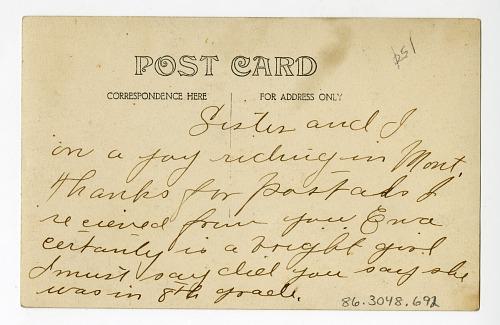 151
POST CARD
CORRESPONDENCE HERE
FOR ADDRESS ONLY
Sister and I
on a joy riding in Mont.
Thanks for postals I
recieved from you Eva
certanly is a bright girl
I must say did you say she
was in 8th grade.
86.3048.692